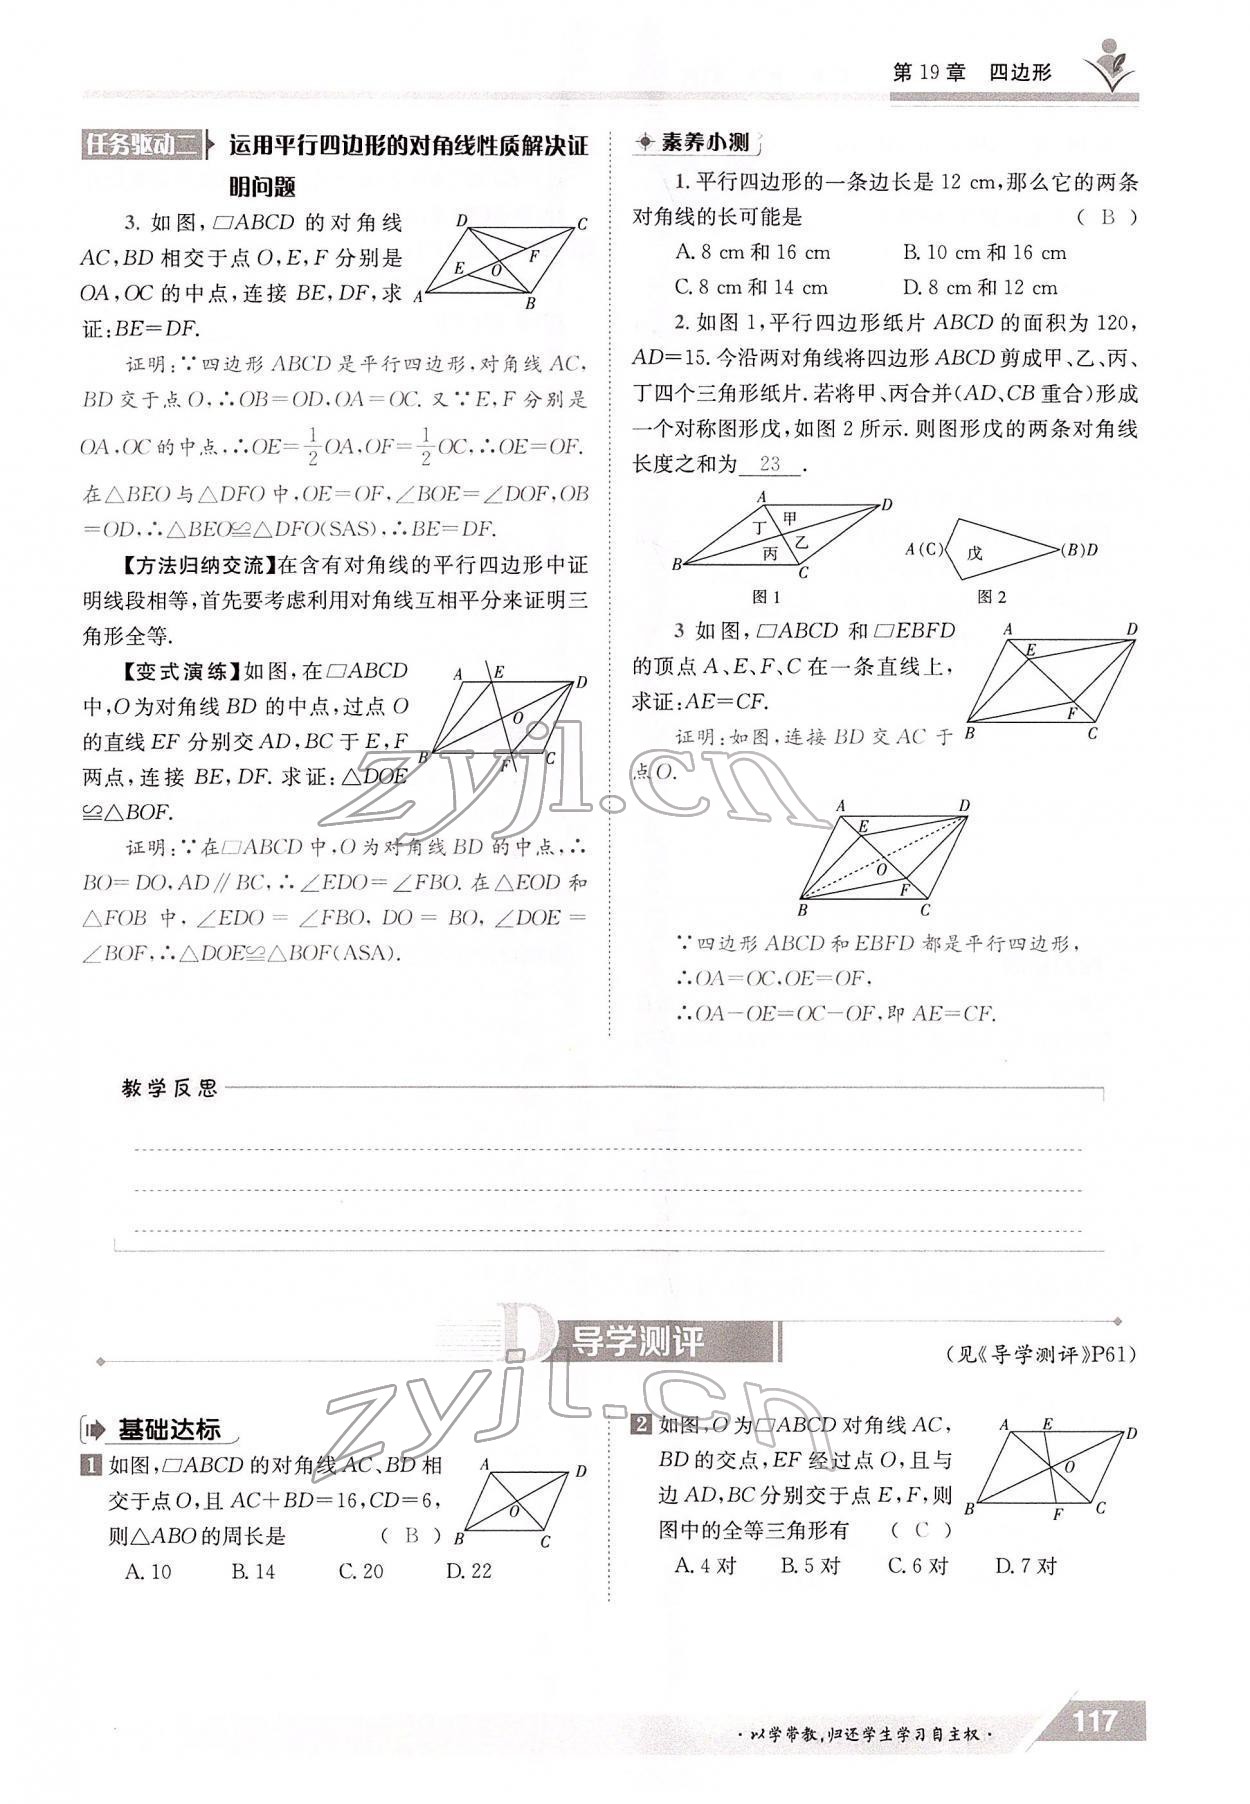 第19章 四边形
任务驱动二 运用平行四边形的对角线性质解决证
明问题
3. 如图,▱ABCD 的对角线
AC,BD 相交于点 O,E,F 分别是
OA,OC 的中点,连接 BE,DF,求
证:BE=DF.
D C F E O A B
证明:∵四边形 ABCD 是平行四边形,对角线 AC,
BD 交于点 O,∴OB=OD,OA=OC. 又∵E,F 分别是
OA,OC 的中点,∴OE=1/2 OA,OF=1/2 OC,∴OE=OF.
在△BEO 与△DFO 中,OE=OF,∠BOE=∠DOF,OB
=OD,∴△BEO≌△DFO(SAS),∴BE=DF.
【方法归纳交流】在含有对角线的平行四边形中证
明线段相等,首先要考虑利用对角线互相平分来证明三
角形全等.
【变式演练】如图,在▱ABCD
中,O为对角线 BD 的中点,过点 O
的直线 EF 分别交 AD,BC 于 E,F
两点,连接 BE,DF. 求证:△DOE
≌△BOF.
A E D O B F C
证明:∵在▱ABCD 中,O为对角线 BD 的中点,∴
BO=DO,AD∥BC,∴∠EDO=∠FBO. 在△EOD 和
△FOB 中,∠EDO = ∠FBO, DO = BO, ∠DOE =
∠BOF,∴△DOE≌△BOF(ASA).
素养小测
1. 平行四边形的一条边长是 12 cm,那么它的两条
对角线的长可能是 ( B )
A. 8 cm 和 16 cm B. 10 cm 和 16 cm
C. 8 cm 和 14 cm D. 8 cm 和 12 cm
2. 如图 1,平行四边形纸片 ABCD 的面积为 120,
AD=15. 今沿两对角线将四边形 ABCD 剪成甲、乙、丙、
丁四个三角形纸片. 若将甲、丙合并(AD、CB 重合)形成
一个对称图形戊,如图 2 所示. 则图形戊的两条对角线
长度之和为 23 .
A D 丁 甲 乙 丙 B C
A(C) 戊 (B)D
图1 图2
3 如图,▱ABCD 和▱EBFD
的顶点 A、E、F、C 在一条直线上,
求证:AE=CF.
A D E F B C
证明:如图,连接 BD 交 AC 于
点O.
A D E O F B C
∵四边形 ABCD 和 EBFD 都是平行四边形,
∴OA=OC,OE=OF,
∴OA-OE=OC-OF,即 AE=CF.
教学反思
D 导学测评
(见《导学测评》P61)
基础达标
1 如图,▱ABCD 的对角线 AC、BD 相
交于点 O,且 AC+BD=16,CD=6,
则△ABO 的周长是 ( B )
A D O B C
A. 10 B. 14 C. 20 D. 22
2 如图,O 为▱ABCD 对角线 AC,
BD 的交点,EF 经过点 O,且与
边 AD,BC 分别交于点 E,F,则
图中的全等三角形有 ( C )
A E D O B F C
A. 4 对 B. 5 对 C. 6 对 D. 7 对
·以学带教,归还学生学习自主权·
117
zyjl.cn
zyjl.cn